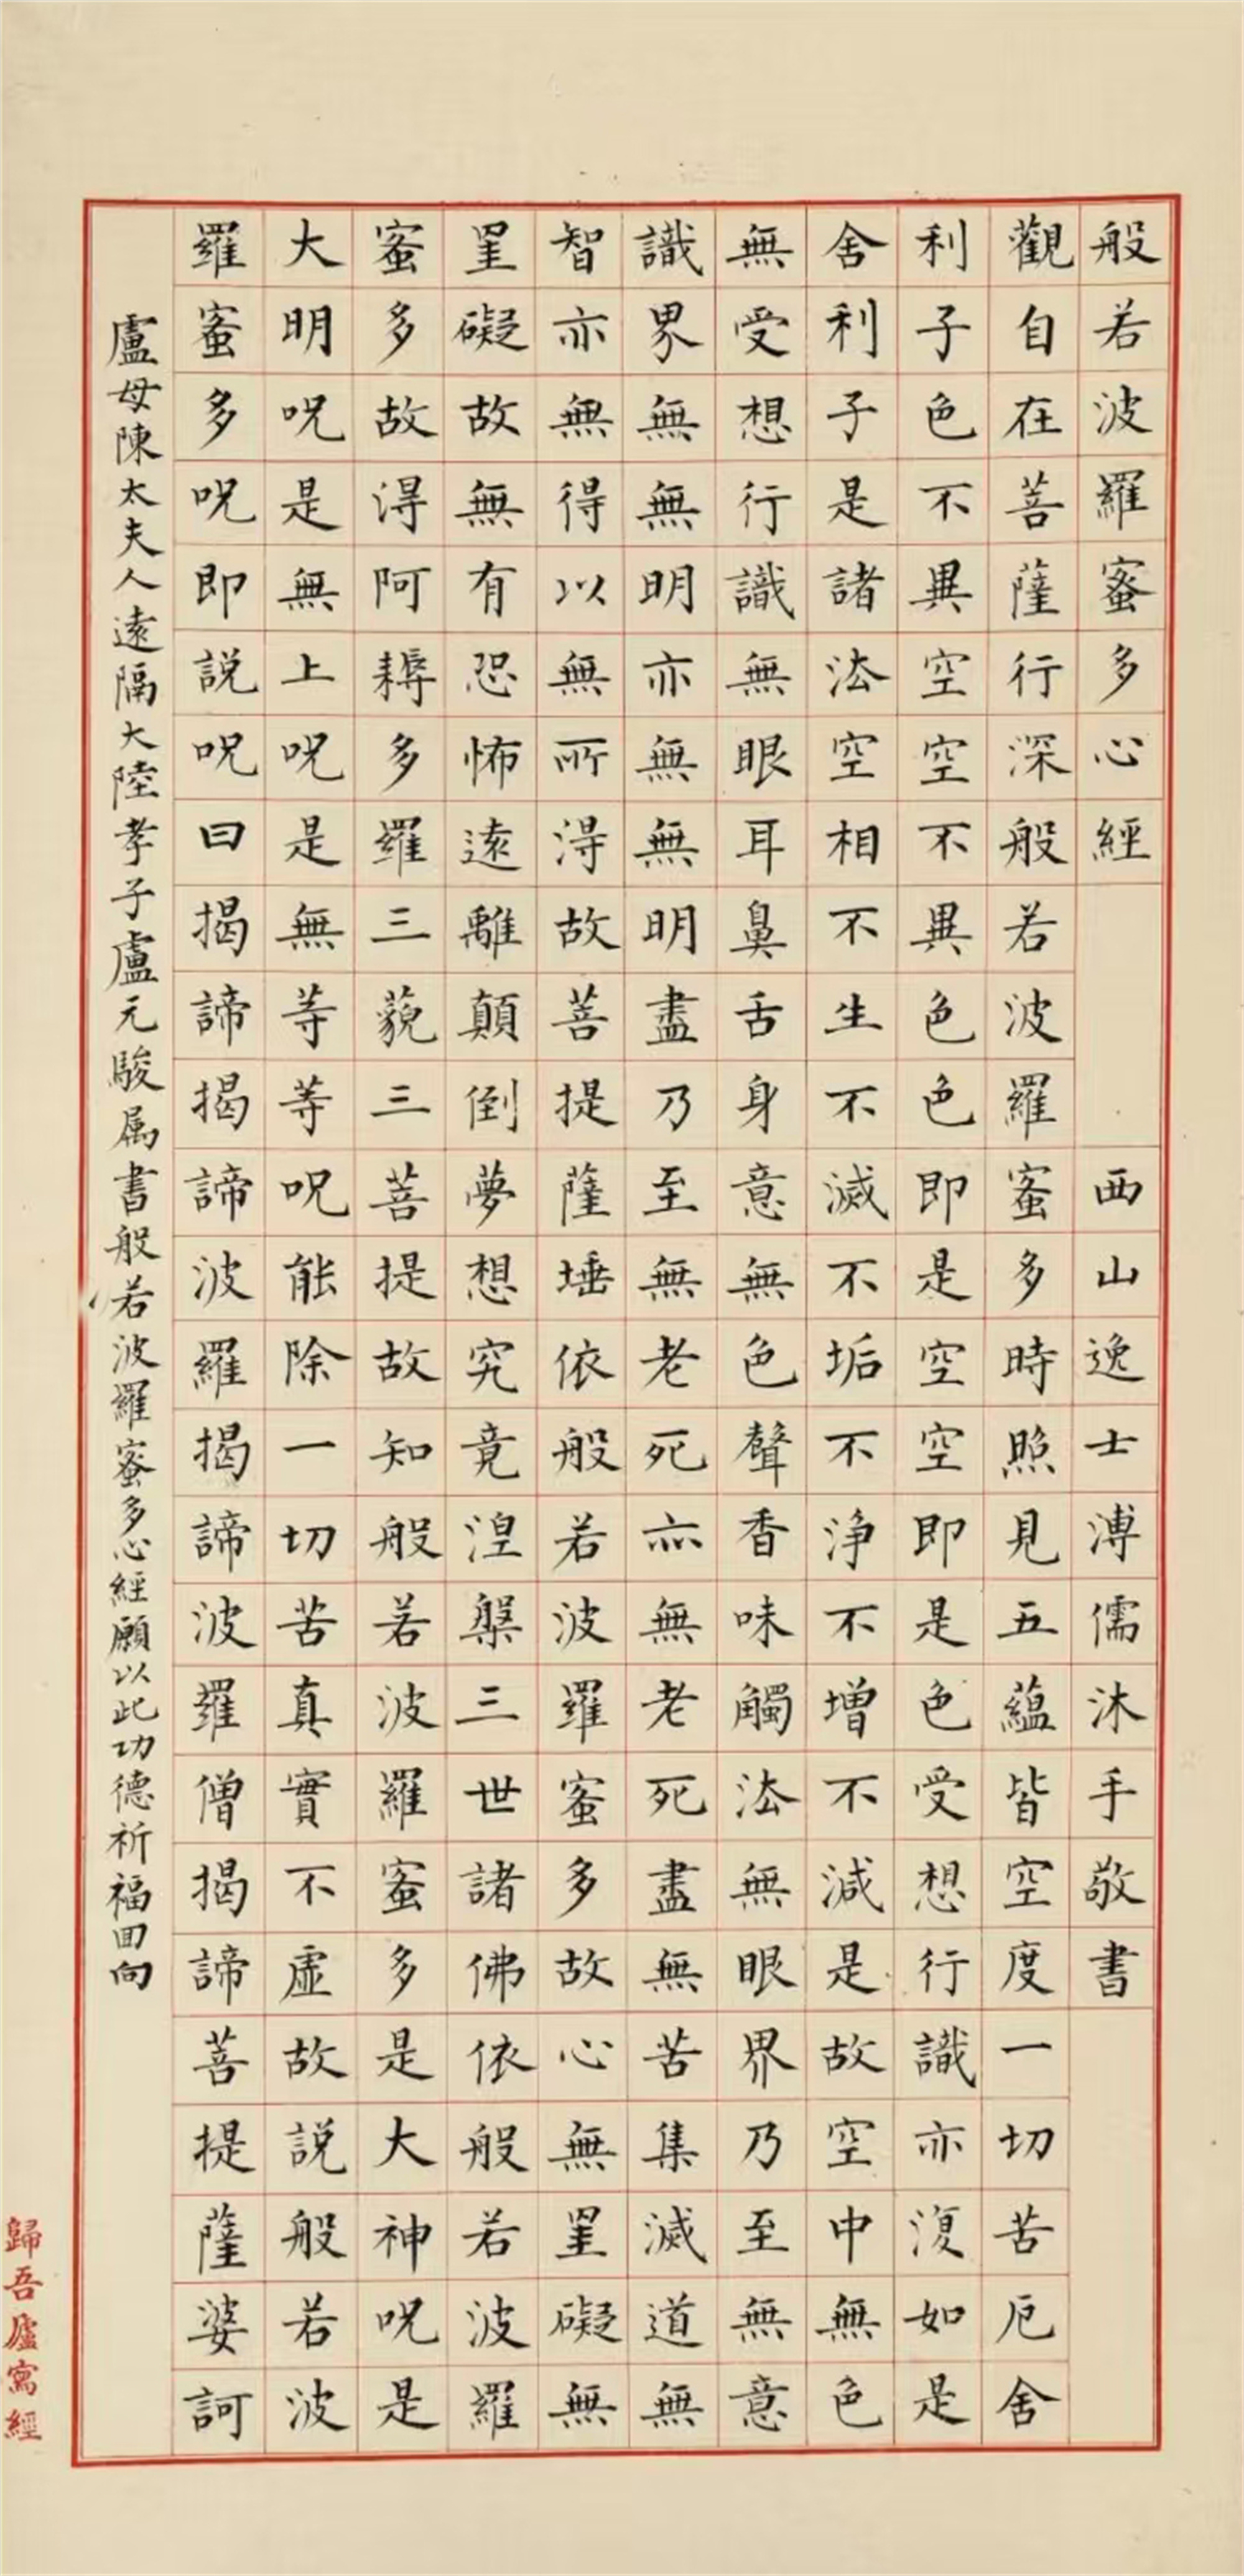 般若波羅蜜多心經 西山逸士溥儒沐手敬書
觀自在菩薩行深般若波羅蜜多時照見五蘊皆空度一切苦厄舍
利子色不異空空不異色色即是空空即是色受想行識亦復如是
舍利子是諸法空相不生不滅不垢不淨不增不減是故空中無色
無受想行識無眼耳鼻舌身意無色聲香味觸法無眼界乃至無意
識界無無明亦無無明盡乃至無老死亦無老死盡無苦集滅道無
智亦無得以無所得故菩提薩埵依般若波羅蜜多故心無罣礙無
罣礙故無有恐怖遠離顛倒夢想究竟涅槃三世諸佛依般若波羅
蜜多故得阿耨多羅三藐三菩提故知般若波羅蜜多是大神呪是
大明呪是無上呪是無等等呪能除一切苦真實不虛故說般若波
羅蜜多呪即說呪曰揭諦揭諦波羅揭諦波羅僧揭諦菩提薩婆訶
盧母陳太夫人遠隔大陸孝子盧元駿属書般若波羅蜜多心經願以此功德祈福回向
歸吾廬寫經